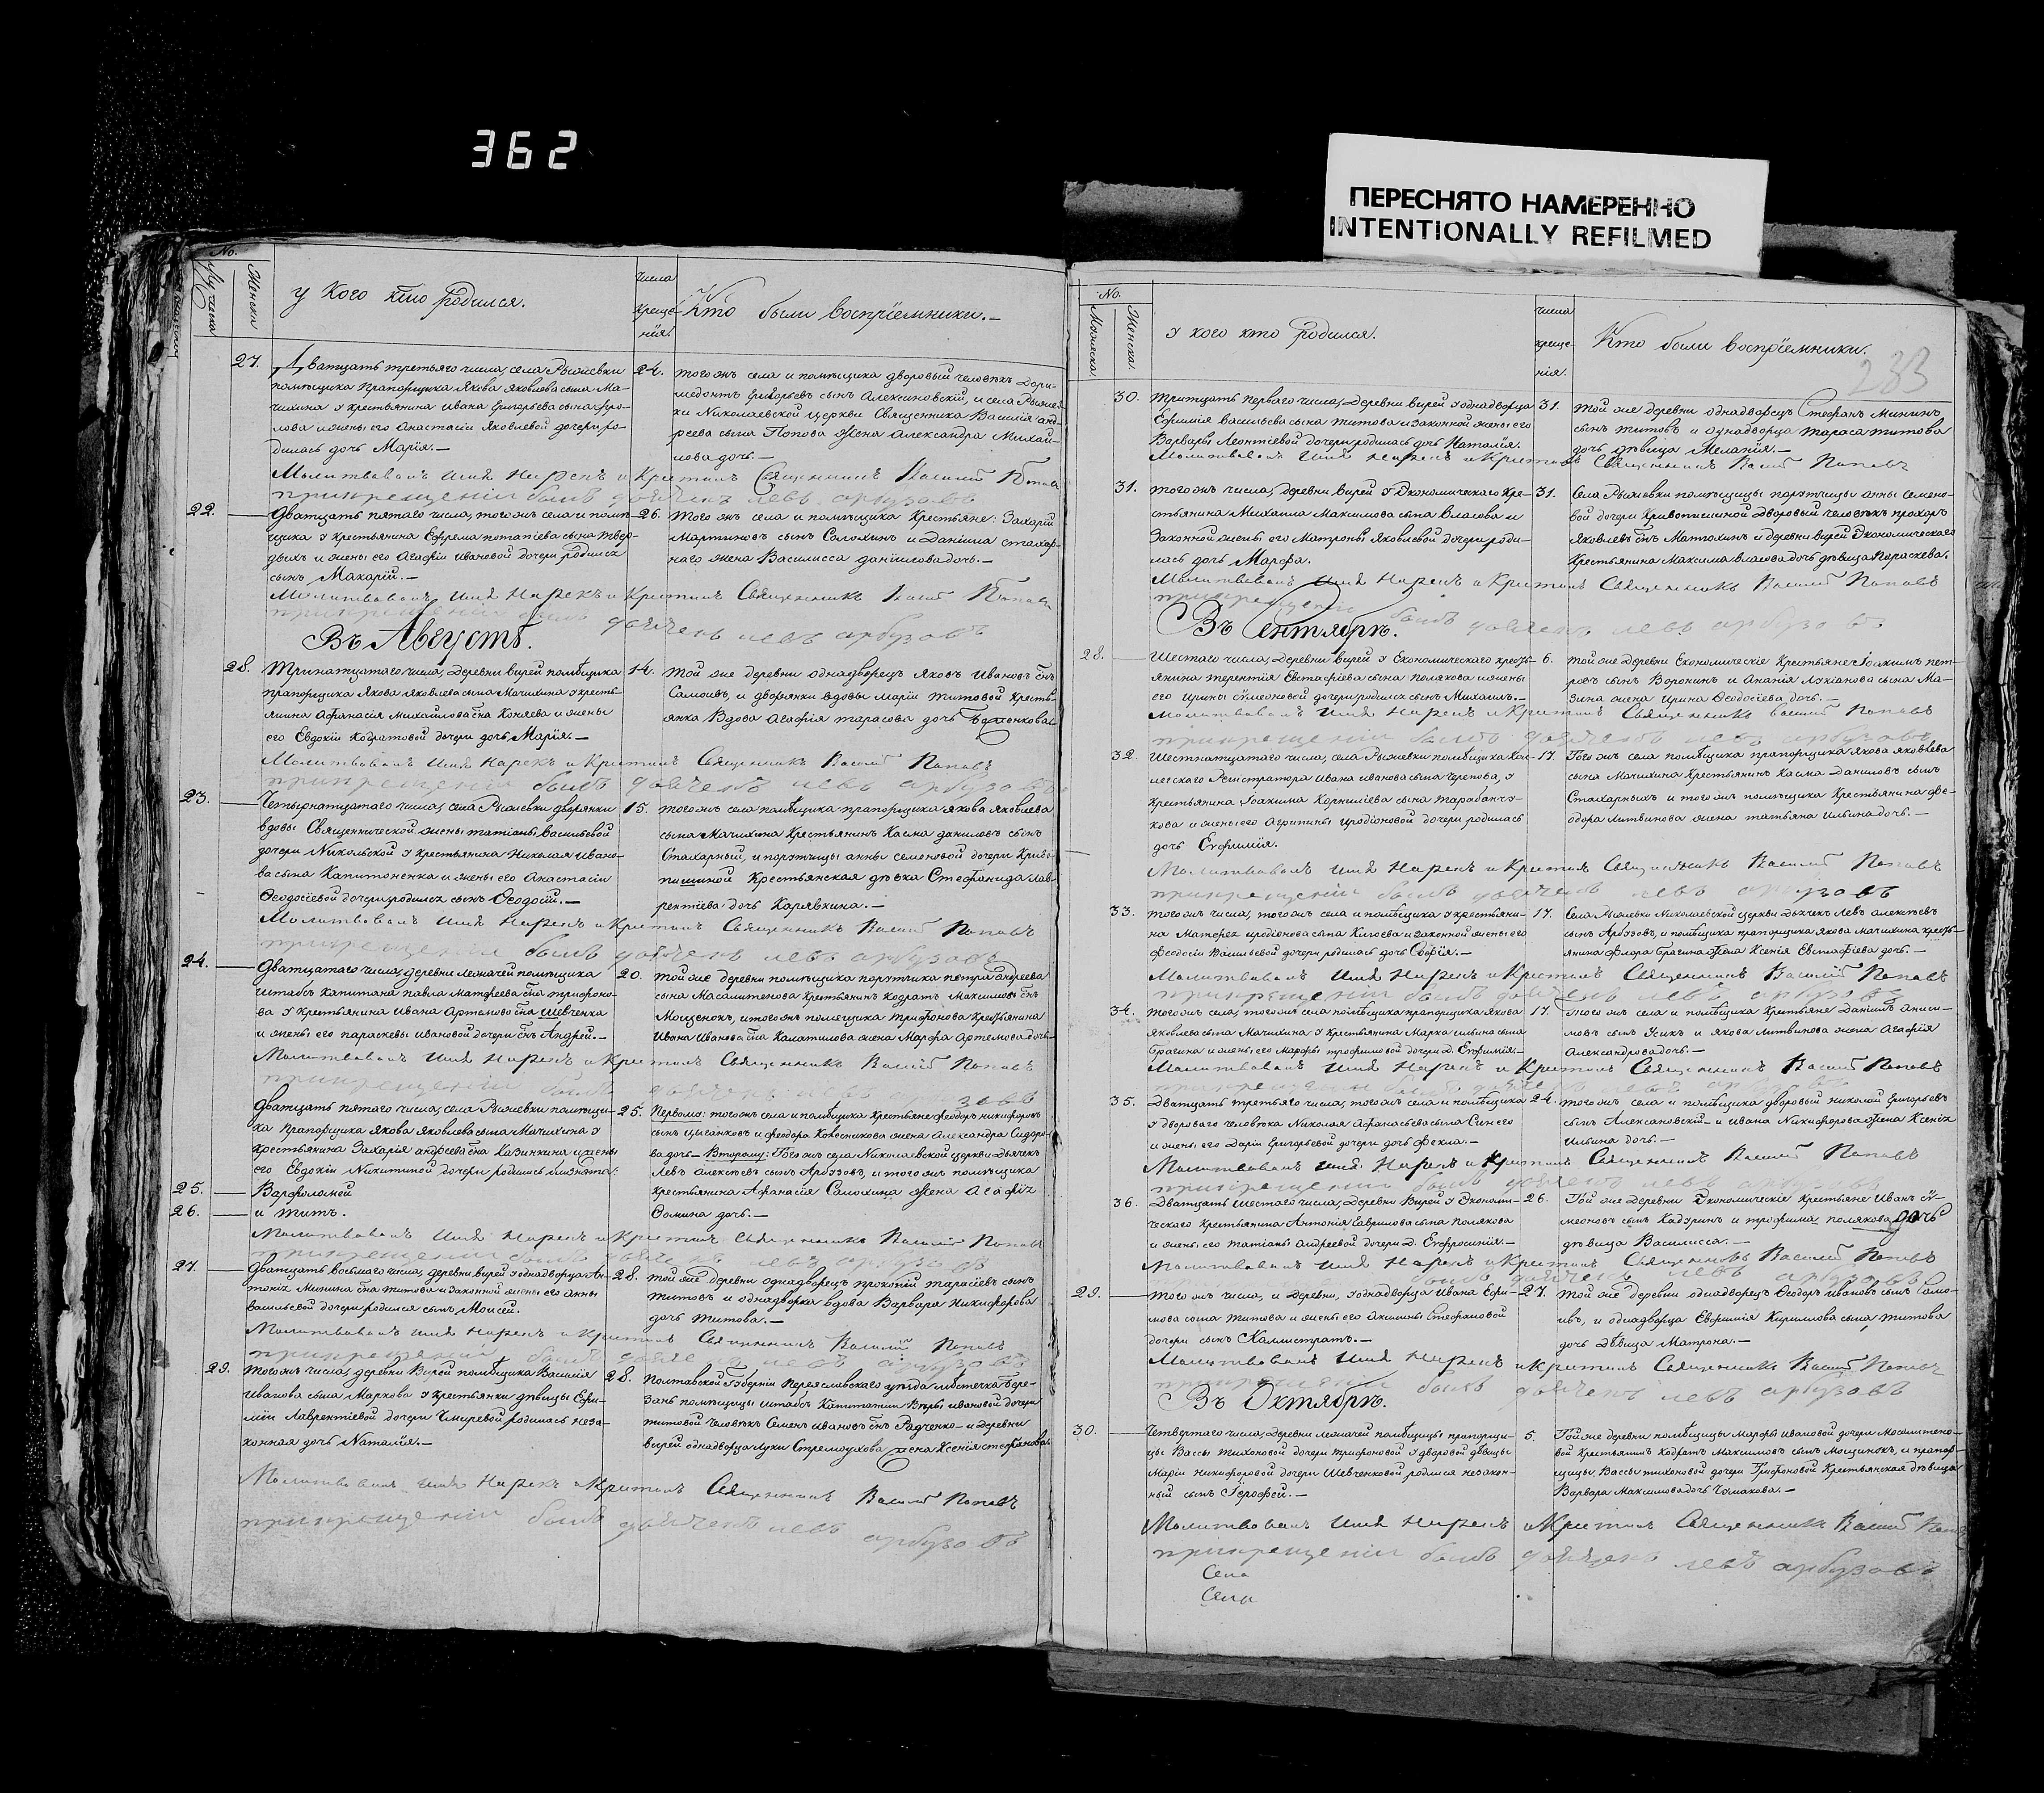 362
ПЕРЕСНЯТО НАМЕРЕННО
INTENTIONALLY REFILMED
No.
Женска
У Кого кто родился.
числа
креще-
нїя.
Кто были воспрїемники.
27.
Дватцать третьяго числа, села Рыжевки
помѣщика прапорщика Якова Яковлева сына Ма-
чихина у крестьянина Ивана Григорьева сына
и жены его Анастасїи Яковлевой дочери ро-
дилась дочь Марїя.
24.
того жъ села и помѣщика дворовый человѣкъ Дори-
медонтъ Григорьевъ сынъ Алексановскїй, и села Рыжев-
ки Николаевской церкви Священника Василїя Анд-
реева сына Попова жена Александра Михай-
лова дочь.
Молитвовалъ имя нарекъ и крестилъ Священникъ Василий Поповъ
при крещении былъ дьячекъ левъ арбузовъ
22.
Дватцать пятаго числа, того жъ села и помѣ-
щика у крестьянина Ефрема потапїева сына Твер-
дыхъ и жены его Агафїи Ивановой дочери родился
сынъ Макарїй.
26.
Того жъ села и помѣщика Крестьяне: Захарїй
Мартиновъ сынъ Солохинъ и Данїила стахар-
наго жена Василисса данїилова дочь.
Молитвовалъ имя нарекъ и крестилъ Священникъ Поповъ
при крещении былъ дьячекъ левъ арбузовъ
Въ Августѣ.
28.
Тринатцатаго числа, деревни вирей помѣщика
прапорщика Якова Яковлева сына Мачихина у кресть-
янина Афанасїя Михайлова сна Коняева и жены
его Евдокїи Кодратовой дочери дочь Марїя.
14.
той же деревни однадворецъ Яковъ Ивановъ снъ
и дворянки вдовы Марїи Титовой кресть-
янка Вдова Агафїя тарасова дочь
Молитвовалъ имя нарекъ и крестилъ Священникъ Василий Поповъ
при крещении былъ дьячекъ левъ арбузовъ
23.
Четырнатцатаго числа, села Рыжевки дворянки
вдовы Священнической жены татїаны Васильевой
дочери Никольской у крестьянина Николая Ивано-
ва сына Капитоненка и жены его Анастасїи
Ѳеодосїевой дочери родился сынъ Ѳеодосїй.
15.
того жъ села помѣщика прапорщика якова Яковлева
сына Мачихина крестьянинъ Касма даниловъ сынъ
Стахарный, и порутчицы анны семеновой дочери Криво-
пишиной Крестьянская дѣвка Стефанида Лав-
рентїева дочь Карявкина.
Молитвовалъ имя нарекъ и крестилъ Священникъ Василий Поповъ
при крещении былъ дьячекъ левъ арбузовъ
24.
Дватцатаго числа, деревни Лежачей помѣщика
штабсъ капитана павла Матфеева сна трифоно-
ва у крестьянина Ивана Артемова сна Шевченка
и жены его параскевы Ивановой дочери снъ Андрей.
20.
той же деревни помѣщика порутчика петра андреева
сына Масалитенова крестьянинъ Кодратъ Максимовъ снъ
Мощенокъ, и того жъ помещика Трифонова крестьянина
Ивана Иванова сна Калатилова жена Марфа Артемова дочь.
Молитвовалъ имя нарекъ и крестилъ Священникъ Василий Поповъ
Дватцать пятаго числа, села Рыжевки помѣщи-
ка прапорщика Якова Яковлева сына Мачихина у
крестьянина Захарїя андреева сна Казинкина и жены
его Евдокїи Никитиной дочери родились близнята:
25.
Варфоломей
26.
и Титъ.
25.
Первому: того жъ села и помѣщика крестьяне феодоръ никифоровъ
сынъ Цыганковъ и феодора Колесникова жена Александра Сидоро-
ва дочь. Второму: Того жъ села Николаевской церкви дьячекъ
Левъ Алексѣевъ сынъ Арбузовъ, и того жъ помѣщика
крестьянина Афанасїя Солохина жена Агафїя
Ѳомина дочь.
Молитвовалъ имя нарекъ и крестилъ Священникъ Василий Поповъ
при крещении былъ дьячекъ левъ арбузовъ
27.
Дватцать восьмаго числа, деревни вирей у однадворца Ан-
тонїя Минина сна Титова и законной жены его анны
васильевой дочери родился сынъ Моисей.
28.
той же деревни однадворецъ прокопїй тарасїевъ сынъ
Титовъ и однадворка вдова Варвара никифорова
дочь Титова.
Молитвовалъ имя нарекъ и крестилъ Священникъ Василий Поповъ
при крещении былъ дьячекъ левъ арбузовъ
29.
того жъ числа, деревни Вирей помѣщика Василїя
Иванова сына Маркова у крестьянки дѣвицы Ефи-
мїи Лаврентїевой дочери родилась неза-
конная дочь Наталїя.
28.
Полтавской Губернїи Переяславскаго уѣзда мѣстечка Бере-
зань помѣщицы штабсъ капитанши Вѣры ивановой дочери
титовой человѣкъ Семенъ ивановъ снъ Радченко и деревни
вирей однадворца Луки Стремоухова жена Ксенїя стефанова.
Молитвовалъ имя нарекъ и крестилъ Священникъ Василий Поповъ
при крещении былъ дьячекъ левъ арбузовъ
No.
Мужеска
Женска.
у кого кто родился.
числа
креще-
нїя.
Кто были воспрїемники.
283
30.
Тритцать перваго числа, деревни вирей у однадворца
Ефимїя Васильева сына титова и законной жены его
Варвары Леонтїевой дочери родилась дочь Наталїя.
31.
той же деревни однадворецъ Стефанъ Мининъ
сынъ титовъ и однадворца тараса титова
дочь дѣвица Меланїя.
Молитвовалъ имя нарекъ и крестилъ Священникъ Васий Поповъ
31.
того жъ числа, деревни вирей у Экономическаго кре-
стьянина Михаила Максимова сына Власова и
Законной жены его Матроны Яковлевой дочери роди-
лась дочь Марфа.
31.
Села Рыжевки помѣщицы порутчицы анны семено-
вой дочери Кривопишиной Дворовый человѣкъ прохоръ
Яковлевъ снъ Матюхинъ и деревни вирей Экономическаго
Крестьянина Максима власова дочь дѣвица Параскева.
Молитвовалъ имя нарекъ и крестилъ Священникъ Василий Поповъ
при крещении былъ дьячекъ левъ арбузовъ
Въ Сентябрѣ.
28.
Шестаго числа, деревни вирей у Економическаго кресть-
янина терентїя Евстафїева сына полякова и жены
его Ирины сүмеоновой дочери родился сынъ Михаилъ.
6.
той же деревни Економическїе крестьяне Іоакимъ пет-
ровъ сынъ Воронинъ и Ананїя Лукїанова сына Ма-
зина жена Ирина Ѳеодосїева дочь.
Молитвовалъ имя нарекъ и крестилъ Священникъ Василий Поповъ
при крещении былъ дьячекъ левъ арбузовъ
32.
Шестнатцатаго числа, села Рыжевки помѣщика Кол-
лежскаго Регистратора Ивана иванова сына Черепова, у
крестьянина Іоакима Корнилїева сына тарабанчу-
кова и жены его Агрипины иродїоновой дочери родилась
дочь Евфимїя.
17.
Того жъ села помѣщика прапорщика якова яковлева
сына Мачихина крестьянинъ Касма Даниловъ сынъ
Стахарныхъ и того жъ помѣщика крестьянина фе-
одора литвинова жена татьяна ильина дочь.
Молитвовалъ имя нарекъ и крестилъ Священникъ Василий Поповъ
при крещении былъ дьячекъ левъ арбузовъ
33.
того жъ числа, того жъ села и помѣщика у крестьяни-
на Матфея иродїонова сына Клюева и законной жены его
феодосїи Васильевой дочери родилась дочь Софїя.
17.
Села Рыжевки Николаевской церкви Дьячекъ Левъ алексѣевъ
сынъ Арбузовъ, и помѣщика прапорщика якова мачихина кресть-
янина флора Брагина жена Ксенїя Евстафїева дочь.
Молитвовалъ имя нарекъ и крестилъ Священникъ Василий Поповъ
при крещении былъ дьячекъ левъ арбузовъ
34.
того жъ села, того жъ села помѣщика прапорщика якова
Яковлева сына Мачихина у крестьянина Марка ильина сына
Брагина и жены его Марфы трофимовой дочери д. Евфимїя.
17.
того жъ села и помѣщика крестьяне Данїилъ аниси-
мовъ сынъ и якова литвинова жена Агафїя
Александрова дочь.
Молитвовалъ имя нарекъ и крестилъ Священникъ Василий Поповъ
35.
Дватцать третьяго числа, того жъ села и помѣщика
у дворваго человѣка Николая Афанасьева сына
и жены его Дарїи Григорьевой дочери дочь Фекла.
24.
того жъ села и помѣщика дворовый николай Григорьевъ
сынъ Алексановскїй и Ивана Никифорова жена Ксенїя
Ильина дочь.
Молитвовалъ имя нарекъ и крестилъ Священникъ Василий Поповъ
36.
Дватцать шестаго числа, деревни Вирей у Экономи-
ческаго крестьянина Антонїя Гаврилова сына полякова
и жены его татїаны андреевой дочери д. Евфросинїя.
26.
Той же деревни Экономическїе крестьяне Иванъ сү-
меоновъ сынъ Кадуринъ и трофима полякова дочь
дѣвица Василисса.
Молитвовалъ имя нарекъ и крестилъ Священникъ Василий Поповъ
былъ дьячекъ левъ арбузовъ
29.
того жъ числа, и деревни, у однадворца Ивана Ефи-
мова сына титова и жены его акилины Стефановой
дочери сынъ Каллистратъ.
27.
той же деревни однадворецъ Ѳеодоръ ивановъ сынъ
и однадворца Евфимїя Кирилова сына титова
дочь дѣвица Матрона.
Молитвовалъ имя нарекъ и крестилъ Священникъ Василий Поповъ
при крещении былъ дьячекъ левъ арбузовъ
Въ Октябрѣ.
30.
Четвертаго числа, деревни лежачей помѣщицы прапорщи-
цы Вассы тихоновой дочери трифоновой у дворовой дѣвицы
Марїи никифоровой дочери Шевченковой родился незакон-
ный сынъ Іерофей.
5.
Той же деревни помѣщицы Марфы ивановой дочери Масалитено-
вой крестьянинъ Кодратъ Максимовъ сынъ Мощинокъ, и прапор-
щицы Вассы тихоновой дочери Трифоновой крестьянская дѣвица
Варвара Максимова дочь
Молитвовалъ имя нарекъ и крестилъ Священникъ Василий
при крещении былъ дьячекъ левъ арбузовъ
Села
Села